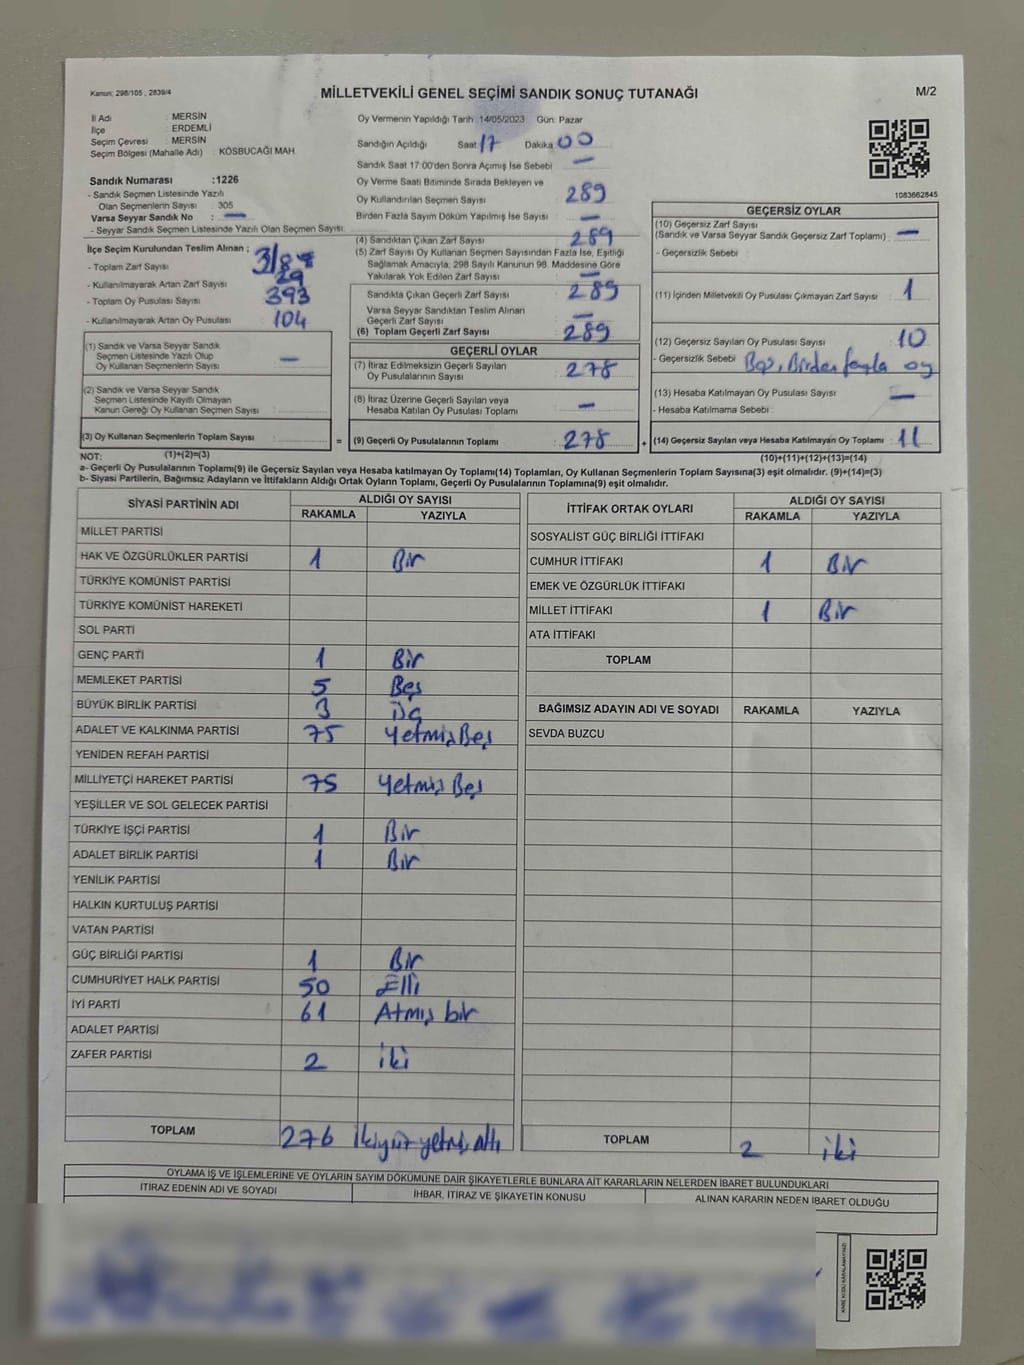 Kanun: 298/105 , 2839/4
MİLLETVEKİLİ GENEL SEÇİMİ SANDIK SONUÇ TUTANAĞI
M/2
İl Adı : MERSİN
İlçe : ERDEMLİ
Seçim Çevresi : MERSİN
Seçim Bölgesi (Mahalle Adı) : KÖSBUCAĞI MAH.
Sandık Numarası :1226
- Sandık Seçmen Listesinde Yazılı
Olan Seçmenlerin Sayısı : 305
Varsa Seyyar Sandık No : —
- Seyyar Sandık Seçmen Listesinde Yazılı Olan Seçmen Sayısı:
İlçe Seçim Kurulundan Teslim Alınan ;
- Toplam Zarf Sayısı :
- Kullanılmayarak Artan Zarf Sayısı : 29
- Toplam Oy Pusulası Sayısı : 393
- Kullanılmayarak Artan Oy Pusulası : 104
(1) Sandık ve Varsa Seyyar Sandık
Seçmen Listesinde Yazılı Olup
Oy Kullanan Seçmenlerin Sayısı : —
(2) Sandık ve Varsa Seyyar Sandık
Seçmen Listesinde Kayıtlı Olmayan
Kanun Gereği Oy Kullanan Seçmen Sayısı :
(3) Oy Kullanan Seçmenlerin Toplam Sayısı :
(1)+(2)=(3)
Oy Vermenin Yapıldığı Tarih : 14/05/2023 Gün: Pazar
Sandığın Açıldığı Saat: 17 Dakika: 00
Sandık Saat 17:00'den Sonra Açımış İse Sebebi : —
Oy Verme Saati Bitiminde Sırada Bekleyen ve
Oy Kullandırılan Seçmen Sayısı : 289
Birden Fazla Sayım Döküm Yapılmış İse Sayısı : —
(4) Sandıktan Çıkan Zarf Sayısı : 289
(5) Zarf Sayısı Oy Kullanan Seçmen Sayısından Fazla İse, Eşitliği
Sağlamak Amacıyla, 298 Sayılı Kanunun 98. Maddesine Göre
Yakılarak Yok Edilen Zarf Sayısı : —
Sandıkta Çıkan Geçerli Zarf Sayısı : 289
Varsa Seyyar Sandıktan Teslim Alınan
Geçerli Zarf Sayısı :
(6) Toplam Geçerli Zarf Sayısı : 289
GEÇERLİ OYLAR
(7) İtiraz Edilmeksizin Geçerli Sayılan
Oy Pusulalarının Sayısı : 278
(8) İtiraz Üzerine Geçerli Sayılan veya
Hesaba Katılan Oy Pusulası Toplamı : —
= (9) Geçerli Oy Pusulalarının Toplamı : 278
1083662845
GEÇERSİZ OYLAR
(10) Geçersiz Zarf Sayısı
(Sandık ve Varsa Seyyar Sandık Geçersiz Zarf Toplamı) : —
- Geçersizlik Sebebi :
(11) İçinden Milletvekili Oy Pusulası Çıkmayan Zarf Sayısı : 1
(12) Geçersiz Sayılan Oy Pusulası Sayısı : 10
- Geçersizlik Sebebi : Boş, Birden fazla oy
(13) Hesaba Katılmayan Oy Pusulası Sayısı : —
- Hesaba Katılmama Sebebi :
+ (14) Geçersiz Sayılan veya Hesaba Katılmayan Oy Toplamı : 11
(10)+(11)+(12)+(13)=(14)
NOT:
a- Geçerli Oy Pusulalarının Toplamı(9) ile Geçersiz Sayılan veya Hesaba katılmayan Oy Toplamı(14) Toplamları, Oy Kullanan Seçmenlerin Toplam Sayısına(3) eşit olmalıdır. (9)+(14)=(3)
b- Siyasi Partilerin, Bağımsız Adayların ve İttifakların Aldığı Ortak Oyların Toplamı, Geçerli Oy Pusulalarının Toplamına(9) eşit olmalıdır.
SİYASİ PARTİNİN ADI ALDIĞI OY SAYISI
RAKAMLA YAZIYLA
MİLLET PARTİSİ
HAK VE ÖZGÜRLÜKLER PARTİSİ 1 Bir
TÜRKİYE KOMÜNİST PARTİSİ
TÜRKİYE KOMÜNİST HAREKETİ
SOL PARTİ
GENÇ PARTİ 1 Bir
MEMLEKET PARTİSİ 5 Beş
BÜYÜK BİRLİK PARTİSİ 3 Üç
ADALET VE KALKINMA PARTİSİ 75 Yetmiş Beş
YENİDEN REFAH PARTİSİ
MİLLİYETÇİ HAREKET PARTİSİ 75 Yetmiş Beş
YEŞİLLER VE SOL GELECEK PARTİSİ
TÜRKİYE İŞÇİ PARTİSİ 1 Bir
ADALET BİRLİK PARTİSİ 1 Bir
YENİLİK PARTİSİ
HALKIN KURTULUŞ PARTİSİ
VATAN PARTİSİ
GÜÇ BİRLİĞİ PARTİSİ 1 Bir
CUMHURİYET HALK PARTİSİ 50 Elli
İYİ PARTİ 61 Atmış bir
ADALET PARTİSİ
ZAFER PARTİSİ 2 iki
TOPLAM 276 İkiyüz yetmiş altı
İTTİFAK ORTAK OYLARI ALDIĞI OY SAYISI
RAKAMLA YAZIYLA
SOSYALİST GÜÇ BİRLİĞİ İTTİFAKI
CUMHUR İTTİFAKI 1 Bir
EMEK VE ÖZGÜRLÜK İTTİFAKI
MİLLET İTTİFAKI 1 Bir
ATA İTTİFAKI
TOPLAM
BAĞIMSIZ ADAYIN ADI VE SOYADI RAKAMLA YAZIYLA
SEVDA BUZCU
TOPLAM 2 iki
OYLAMA İŞ VE İŞLEMLERİNE VE OYLARIN SAYIM DÖKÜMÜNE DAİR ŞİKAYETLERLE BUNLARA AİT KARARLARIN NELERDEN İBARET BULUNDUKLARI
İTİRAZ EDENİN ADI VE SOYADI İHBAR, İTİRAZ VE ŞİKAYETİN KONUSU ALINAN KARARIN NEDEN İBARET OLDUĞU
KARE KODU KARALAMAYINIZ!